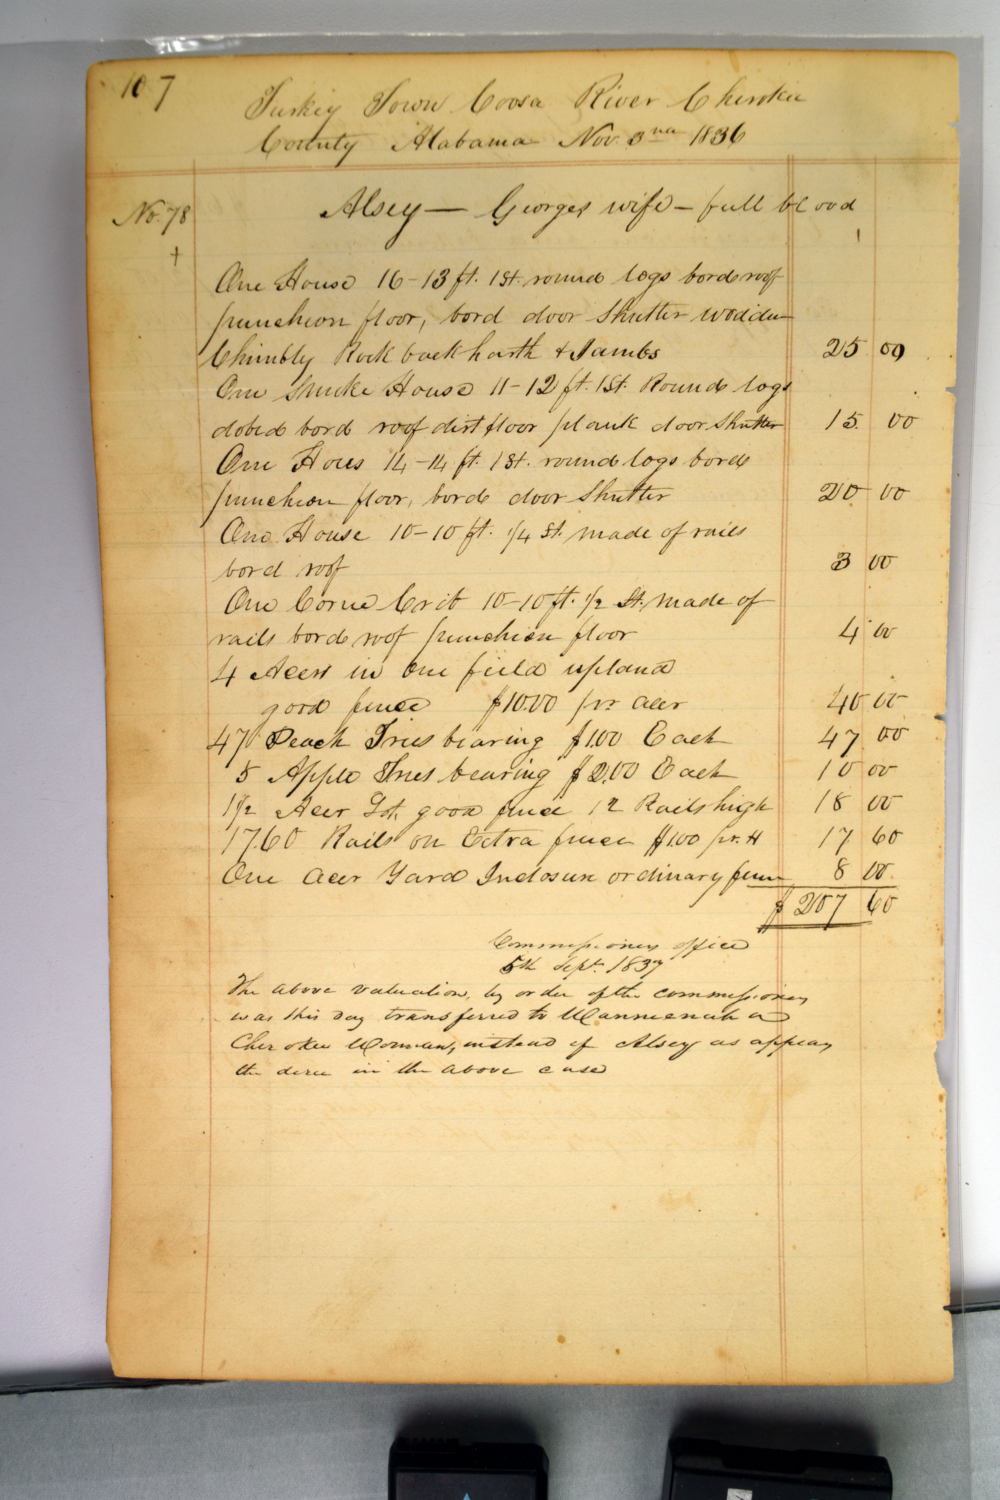 107
Turkey Town Coosa River Cherokee
County Alabama Nov. 3nd 1836
No. 78 Alsey — Georges wife — full blood
One House 16-13 ft. 1 St. round logs bord roof
puncheon floor, bord door Shutter wooden
Chimbly Rock back harth & Jambs 25 00
One Smoke House 11-12 ft. 1 St. Round logs
dobed bord roof dirt floor plank door Shutter 15. 00
One Hous 14-14 ft. 1 St. round logs bord
puncheon floor, bord door Shutter 20 00
One House 10-10 ft. 1/4 St. made of rails
bord roof 3 00
One Corne Crib 10-10 ft. 1/2 St. made of
rails bord roof puncheon floor 4 00
4 Acers in one field upland
good fence $10.00 pr. acer 40 00
47 Peach Trees bearing $1.00 Each 47 00
5 Apple Trees bearing $2.00 Each 10 00
1 1/2 Acer Lot good fence 12 Rails high 18 00
1760 Rails on Extra fence $1.00 pr. H 17. 60
One acer Yard Inclosure ordinary fence 8 00.
$ 207 60
Commissioners office
5th Sept. 1837
The above valuation, by order of the commissioners
was this day transferred to
Cherokee Woman, instead of Alsey as appears
the decree in the above case